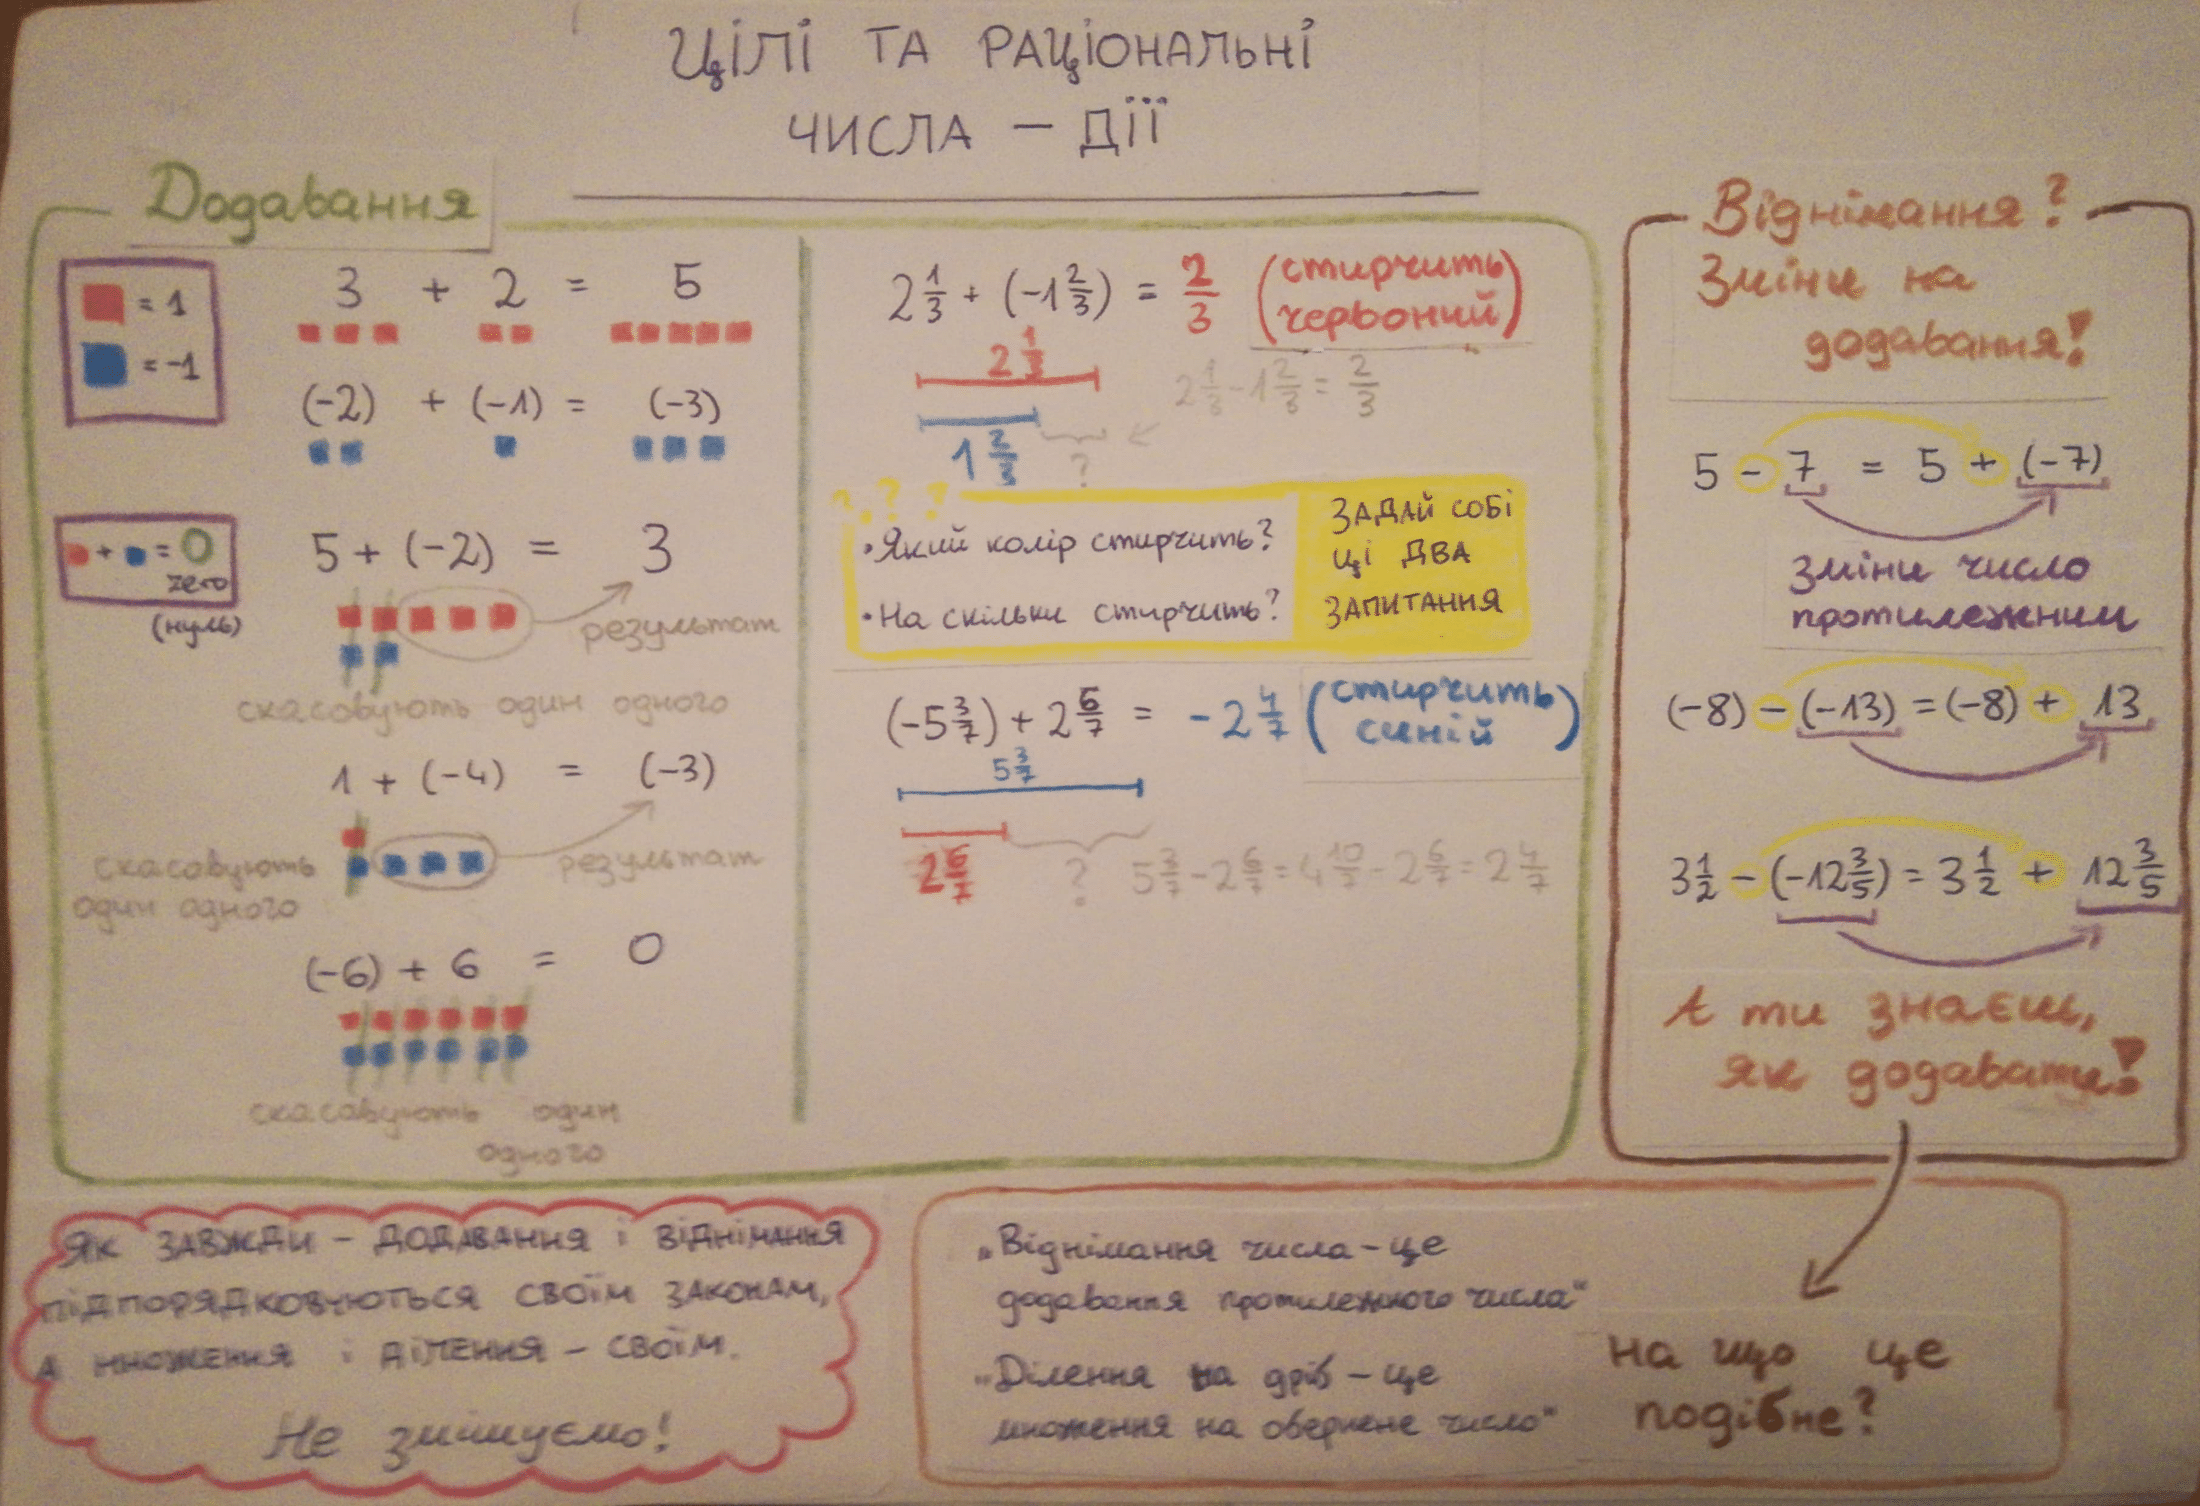 ЦІЛІ ТА РАЦІОНАЛЬНІ
ЧИСЛА – ДІЇ
Додавання
= 1
= -1
3 + 2 = 5
(-2) + (-1) = (-3)
+ = 0
zero
(нуль)
5 + (-2) = 3
результат
скасовують один одного
1 + (-4) = (-3)
скасовують
один одного
результат
(-6) + 6 = 0
скасовують один
одного
2 1/3 + (-1 2/3) = 2/3 (стирчить
червоний)
2 1/3
2 1/3 - 1 2/3 = 2/3
1 2/3
?
? ? ?
• Який колір стирчить?
• На скільки стирчить?
ЗАДАЙ СОБІ
ЦІ ДВА
ЗАПИТАННЯ
(-5 3/7) + 2 6/7 = -2 4/7 (стирчить
синій)
5 3/7
2 6/7
?
5 3/7 - 2 6/7 = 4 10/7 - 2 6/7 = 2 4/7
Віднімання?
Зміни на
додавання!
5 - 7 = 5 + (-7)
зміни число
протилежним
(-8) - (-13) = (-8) + 13
3 1/2 - (-12 3/5) = 3 1/2 + 12 3/5
А ти знаєш,
як додавати!
ЯК ЗАВЖДИ – ДОДАВАННЯ І ВІДНІМАННЯ
ПІДПОРЯДКОВУЮТЬСЯ СВОЇМ ЗАКОНАМ,
А МНОЖЕННЯ І ДІЛЕННЯ – СВОЇМ.
Не змішуємо!
„Віднімання числа – це
додавання протилежного числа“
„Ділення на дріб – це
множення на обернене число“
на що це
подібне?